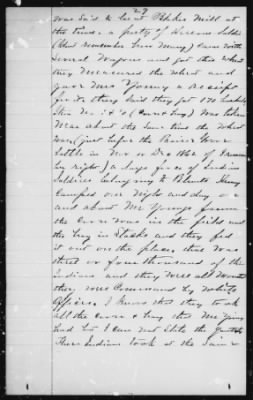 29
was said to be at Parks Mill at
the time. a party of Kansas Soldiers
(dont remember how many) came with
several wagons and got this wheat
they measured the wheat and
gave Mr Young a receipt
for it, they said they got 170 bushels
Item No 4 & 5 (Corn & hay) was taken
was about the same time the wheat
was (just before the Prairie Grove
battle in Nov or Dec 1862 if I remem
ber right) a large force of Indian
Soldiers belonging to Blunts Army
Camped one Night and day on
and about Mr Youngs farm
the corn was in the field and
the hay in Stacks and they fed
it out on the place, there was
three or four thousand of the
Indians and they were all Mounted
they were Command by White
Officers. I know that they took
all the corn & hay that Mr Young
had but I can not State the quantity
These Indians took at the Same